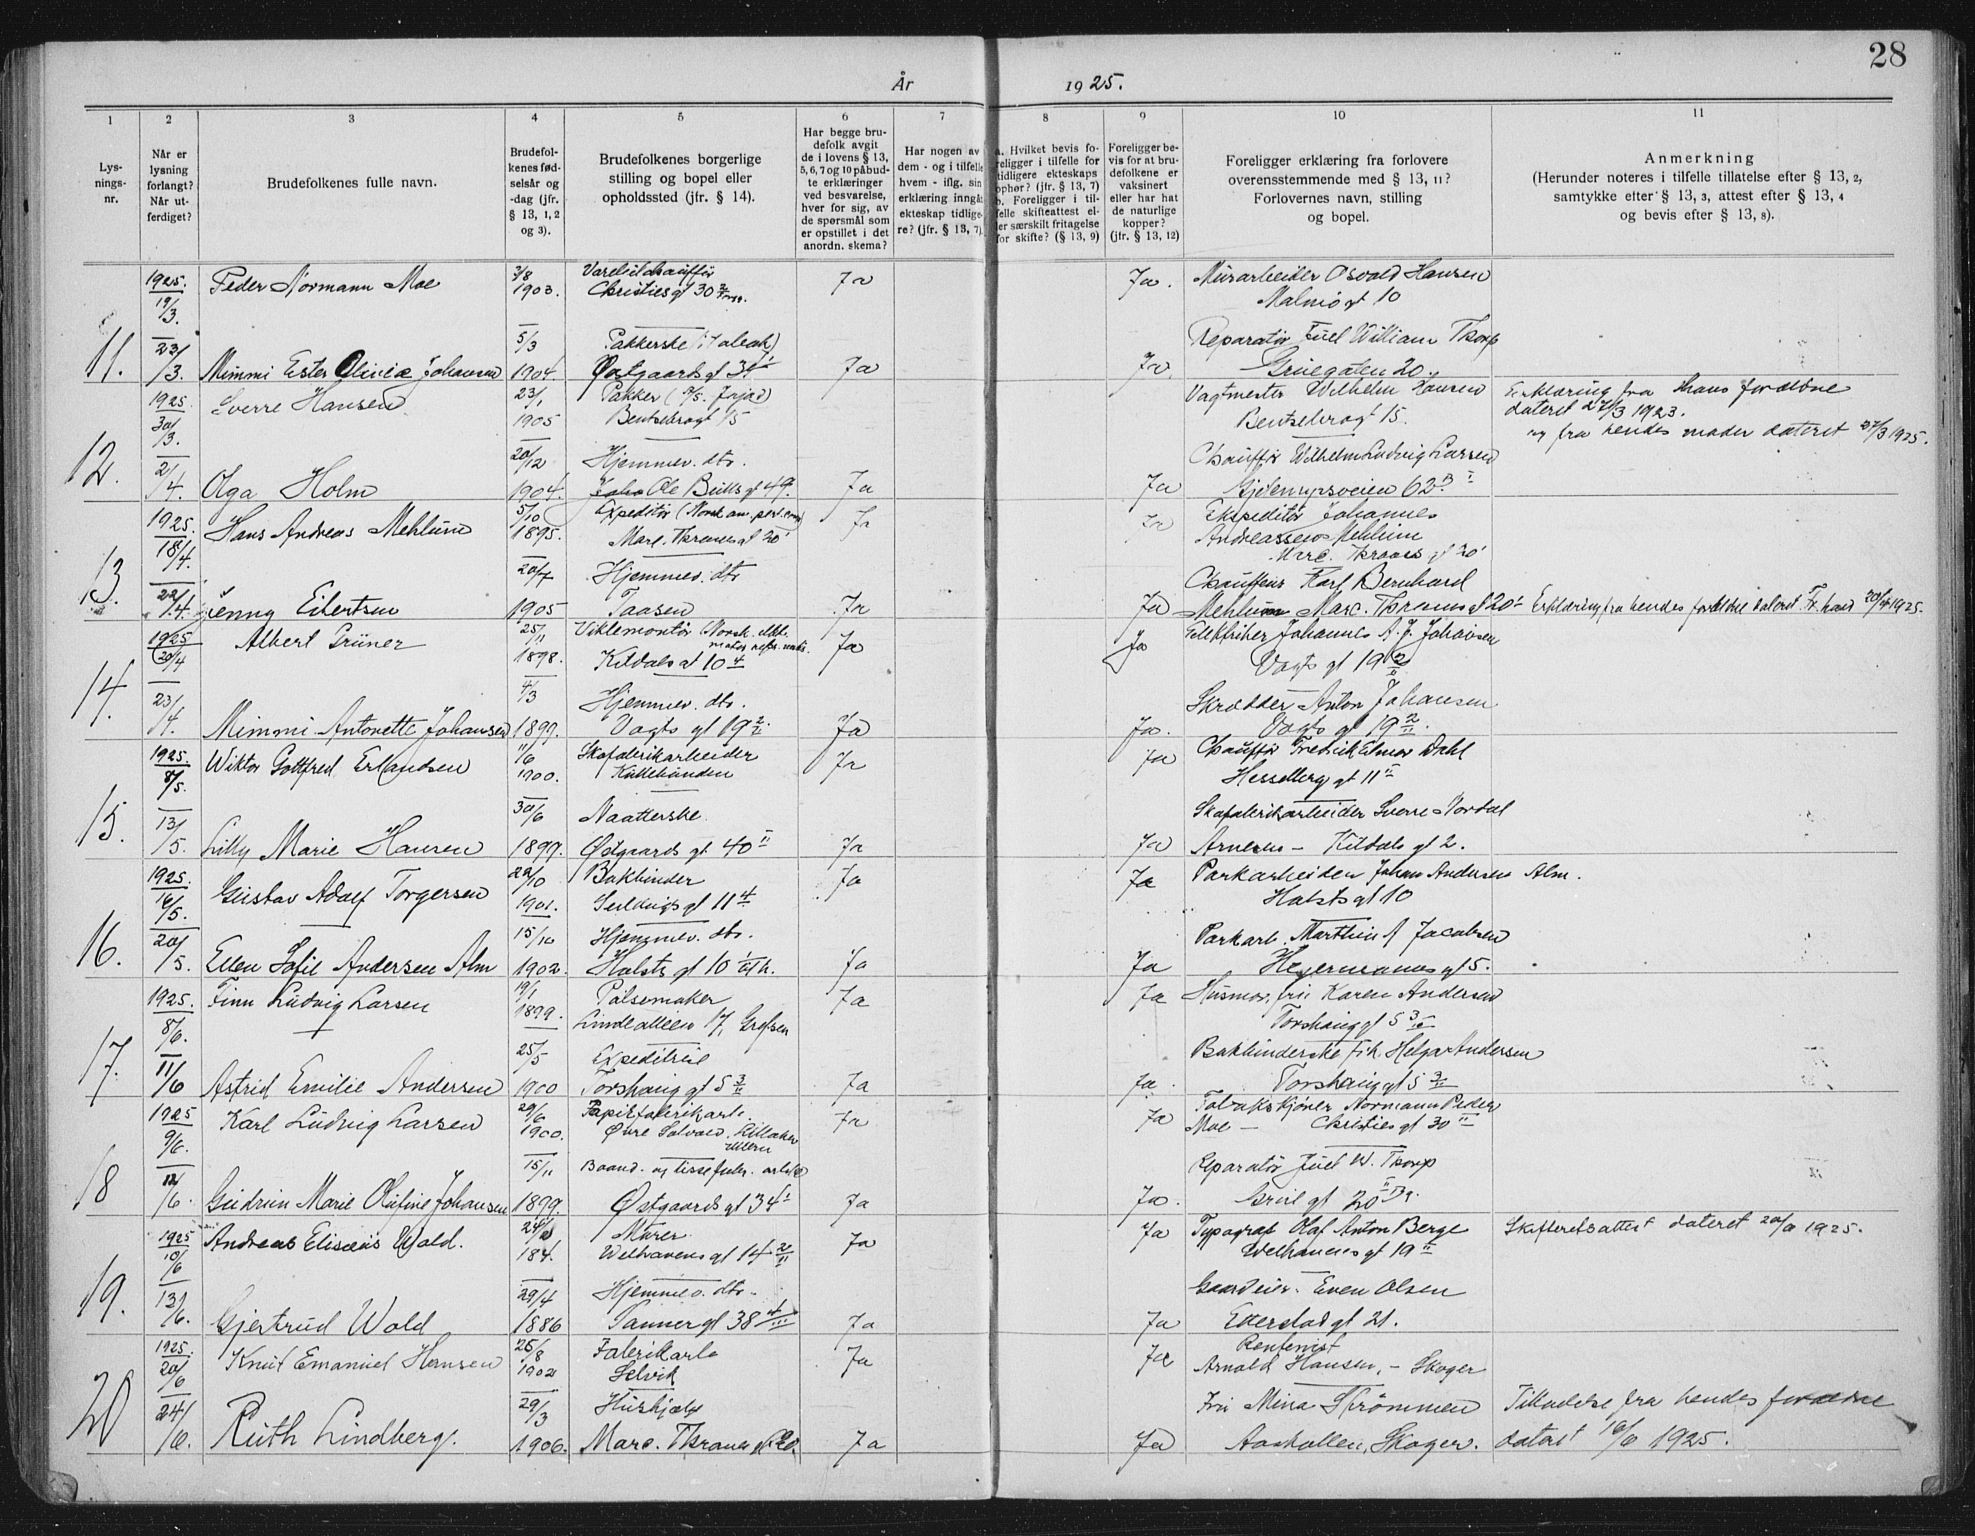 28
År 1925.
1 2 3 4 5 6 7 8 9 10 11
Lys-
nings-
nr.
Når er
lysning
forlangt?
Når ut-
ferdiget?
Brudefolkenes fulle navn.
Brudefol-
kenes fød-
selsår og
-dag (jfr.
§ 13, 1, 2
og 3).
Brudefolkenes borgerlige
stilling og bopel eller
opholdssted (jfr. § 14).
Har begge bru-
defolk avgit
de i lovens § 13,
5, 6, 7 og 10 påbud-
te erklæringer
ved besvarelse,
hver for sig, av
de spørsmål som
er opstillet i det
anordn. skema?
Har nogen av
dem - og i tilfelle
hvem - iflg. sin
erklæring inngåt
ekteskap tidlige-
re? (jfr. § 13, 7)
a. Hvilket bevis fo-
religger i tilfelle for
tidligere ekteskaps
ophør? (jfr. § 13, 7)
b. Foreligger i til-
felle skifteattest el-
ler særskilt fritagelse
for skifte? (§ 13, 9)
Foreligger be-
vis for at bru-
defolkene er
vaksinert
eller har hat
de naturlige
kopper?
(jfr. § 13, 12)
Foreligger erklæring fra forlovere
overensstemmende med § 13, 11?
Forlovernes navn, stilling
og bopel.
Anmerkning
(Herunder noteres i tilfelle tillatelse efter § 13, 2,
samtykke efter § 13, 3, attest efter § 13, 4
og bevis efter § 13, 8).
11.
1925. 19/3. Peder Normann Moe 3/8 1903. Christies gt 30 Ja Ja. Murarbeider Osvald Hansen
Malmøgt 10
23/3. Mimmi Ester Olivia Johansen 5/3 1904. Pakkerske
Østgaards gt 34 Ja Ja. Reparatør Juel William Thorp
Grünegaten 20.
12.
1925 30/3. Sverre Hansen 23/1 1905 Pakker
Bentsebrogt 15 Vagtmester Wilhelm Hansen
Bentsebrogt 15. Erklæring fra hans forældre
dateret 27/3 1923.
og fra hendes moder dateret 27/3 1925.
2/4. Olga Holm 20/12 1904. Hjemmev. dtr.
Ole Bulls gt 49. Ja Ja Chauffør Wilhelm Ludvig Larsen
62
13.
1925. 18/4. Hans Andreas Mehlum 5/10 1895. Expeditør
Marc. Thranes gt 20 Ja Ja Ekspeditør Johannes
Andreassen Mehlum
Marc. Thranes gt 20
22/4. Jenny Eilertsen 20/7 1905 Hjemmev. dtr
Taasen Ja Ja Chauffeur Karl Bernhard
Mehlum Marc. Thranes gt 20 Erklæring fra hendes forældre dateret 20/4 1925.
14.
1925 20/4 Albert Grüner 25/11 1898. Viklemontør
Kildals gt 10 Ja Ja Johannes A. J. Johansen
Vogts gt 19
23/4. Mimmi Antonette Johansen 4/3 1899. Hjemmev. dtr.
Vogts gt 19 Ja Ja. Skrædder Anton Johansen
Vogts gt 19
15.
1925. 8/5. Wiktor Gottfred Erlandsen 11/6 1900. Skofabrikarbeider
Ja Ja Chauffør Fredrik Elmar Dahl
Hesselbergs gt 11
13/5. Lilly Marie Hansen 30/6 1899. Naatlerske.
Østgaards gt. 40 II Ja Ja Skofabrikarbeider Sverre Nordal
Arnesen - Kildals gt 2.
16.
1925. 16/5. Gustav Adolf Torgersen 22/10 1901. Bokbinder
gt 11 Ja Ja Parkarbeider Johan Andersen Alm.
Holsts gt 10
20/5. Ellen Sofie Andersen Alm 15/10 1902. Hjemmev. dtr.
Holsts gt 10 Ja Ja Parkarb. Marthin A Jacobsen
Hegermanns gt 5.
17.
1925. 8/6. Finn Ludvig Larsen 19/1 1899. Pølsemaker
Lindealleen 17, Grefsen Ja Ja Husmor, fru Karen Andersen
Torshauggt 5
11/6 Astrid Emilie Andersen 25/5 1900 Expeditrise
Torshaug gt 5 Ja Ja. Bokbinderske frk. Helga Andersen
Torshauggt 5
18
1925 9/6. Karl Ludvig Larsen 29/6 1900. Papirfabrikarb.
Øvre Ja Ja Normann Peder
Moe - Christies gt 30 II
12/6. Gudrun Marie Olufine Johansen 15/11 1899. Baand- og
Østgaards gt 34 Ja Ja. Reparatør Juel W. Thorp
gt 20
19.
1925 10/6 Andreas Eliseus Wold. 184. Murer
Welhavens gt 14 Ja Ja Typograf Olaf Anton Berge
Welhavens gt 19 II Skifteretsattest dateret 1925.
13/6. Gjertrud Wold 29/4 1886 Hjemmev. dtr.
Sannergt 38 Ja Ja Gaardeier. Even Olsen
Etterstadgt 21.
20
1925. 20/6 Knut Emanuel Hansen 25/8 1902 Fabrikarb
Selvik Ja Ja Rentenist
Arnold Hansen, - Skoger
24/6. Ruth Lindberg. 29/3 1906. Hushjælp
Marc. Thranes gt 20. Ja Ja Fru Mina Strømmen
Skoger. Tilladelse fra hendes forældre
dateret 16/6 1925.